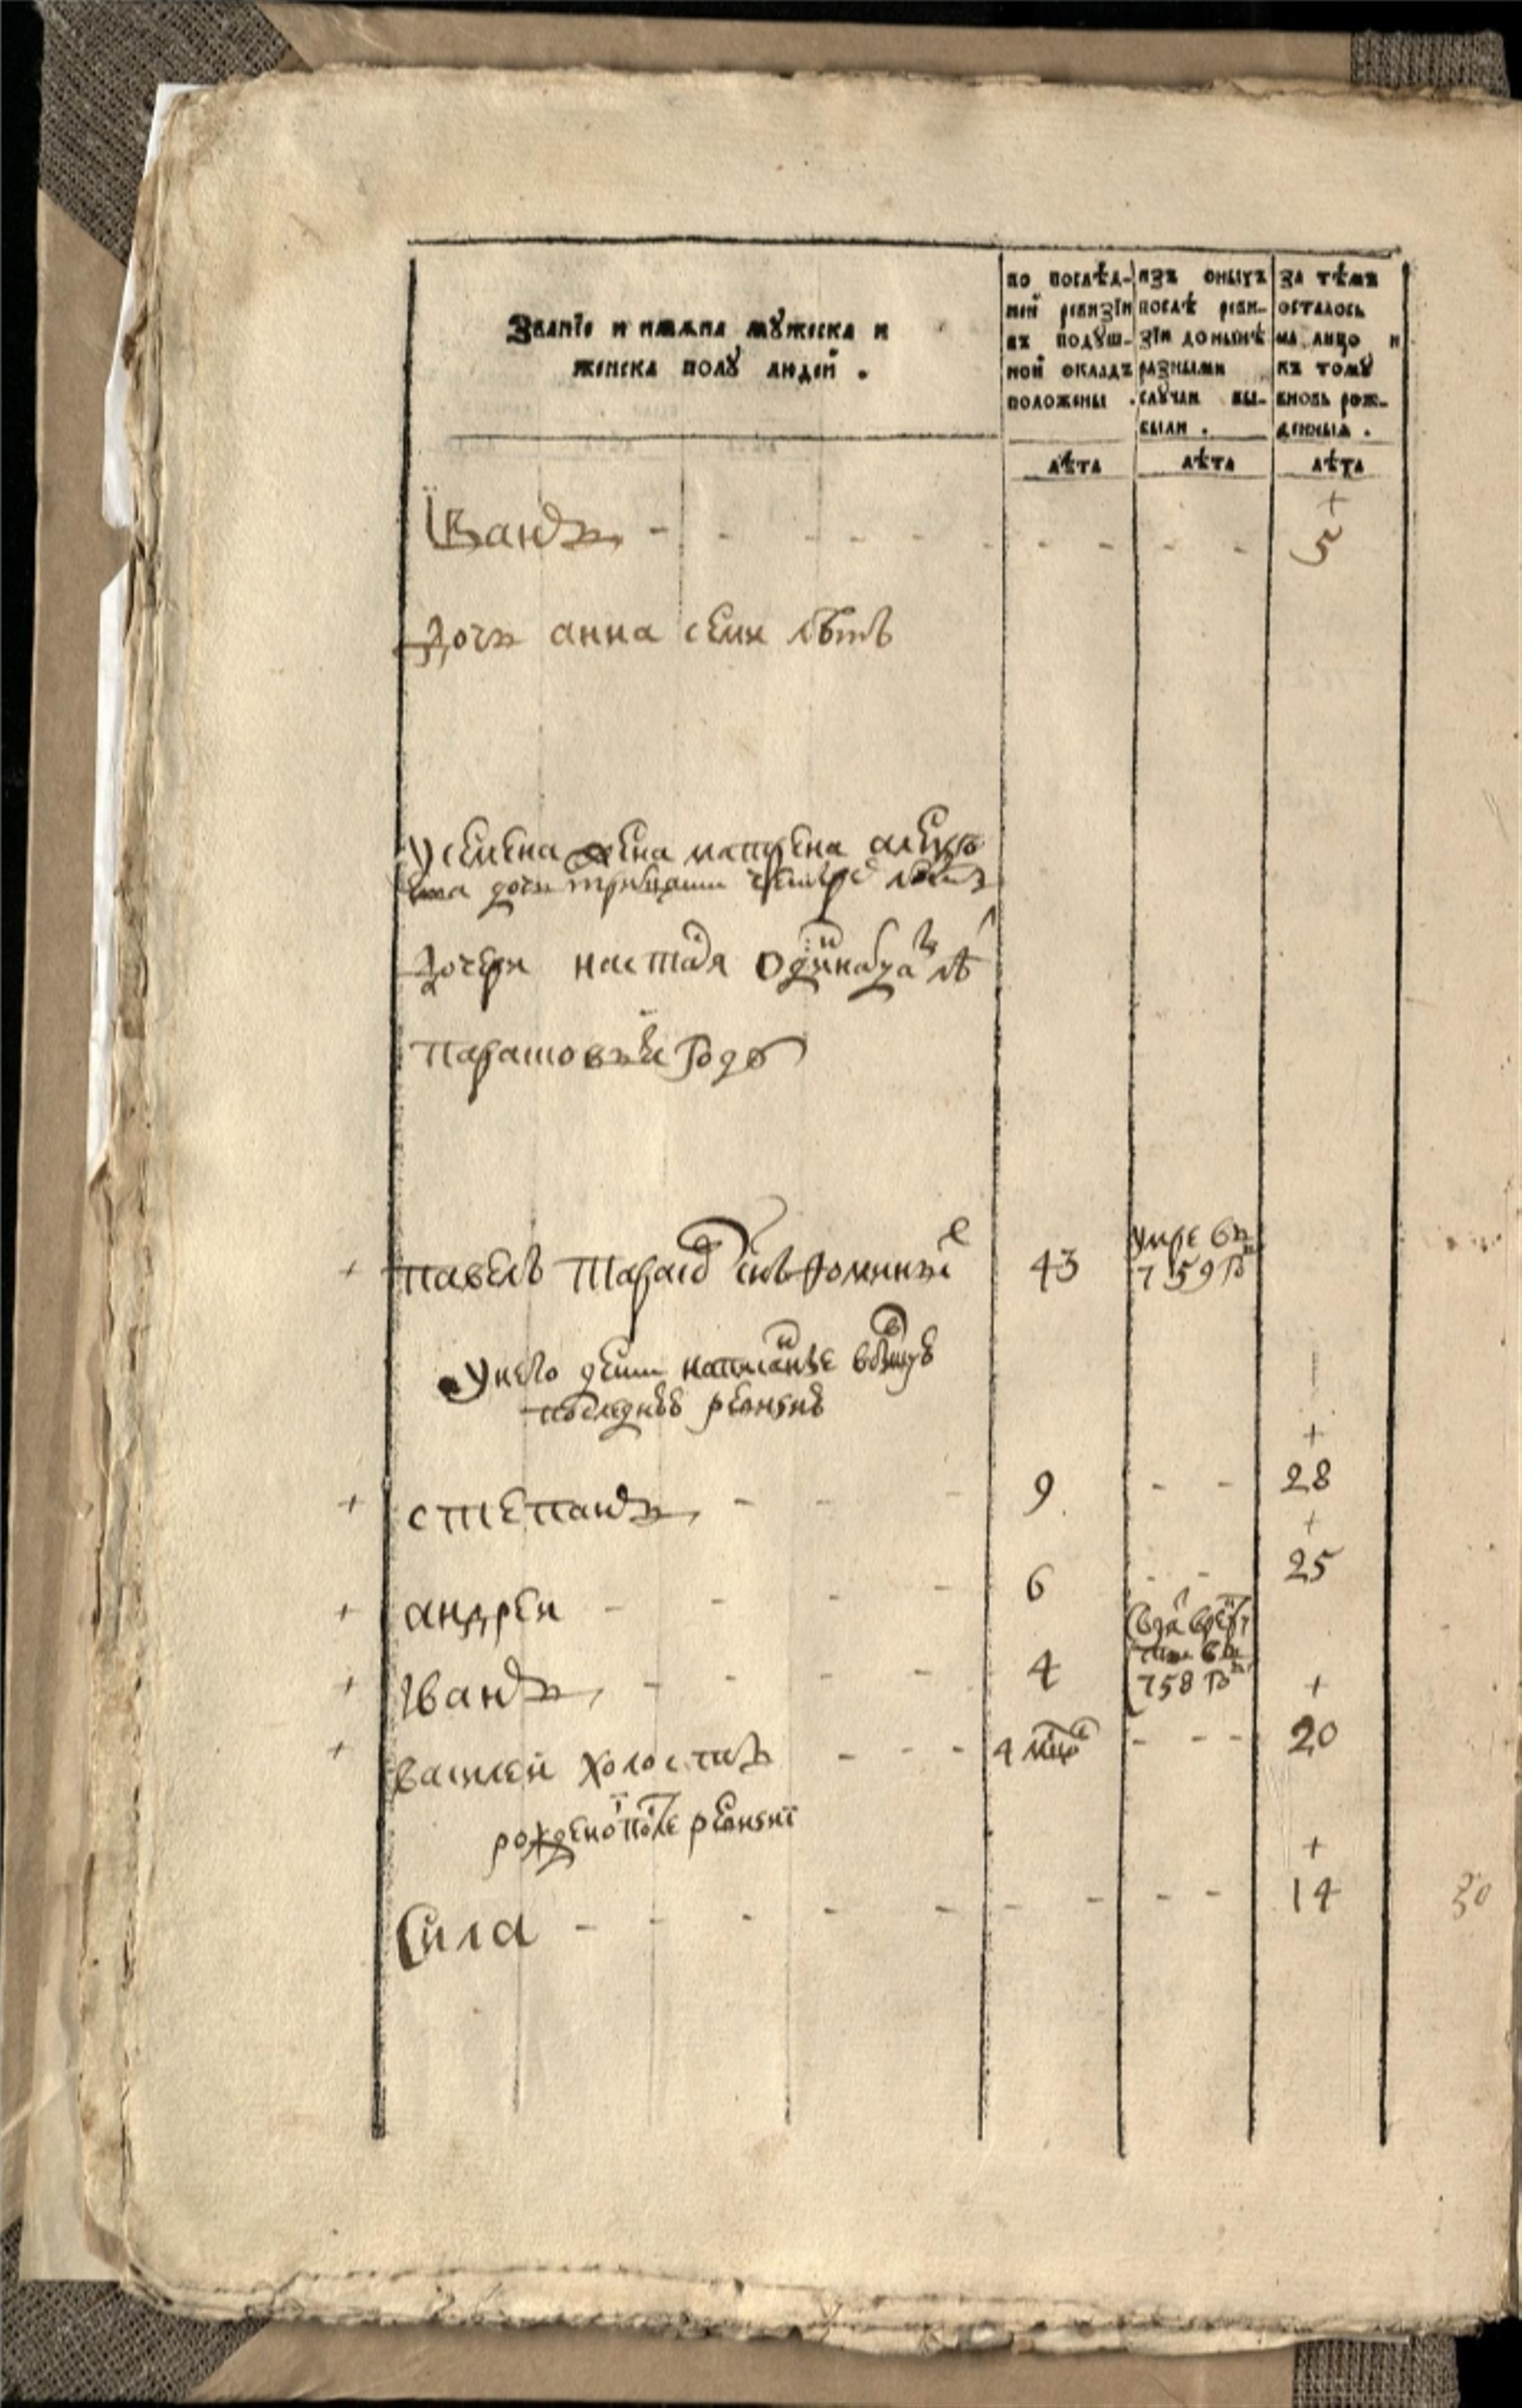 Званїе и имѧна мꙋжеска и
женска полꙋ людей .
по послѣд-
ней ревизїи
въ подꙋш-
ной окладъ
положены .
изъ оныхъ
послѣ реви-
зїи донынѣ
разными
слꙋчаи вы-
были .
за тѣмъ
осталось
на лицо и
къ томꙋ
вновь рож-
денныѧ .
лѣта лѣта лѣта
+
Їванъ - - - - - - - - - - 5
дочь анна семи лѣтъ
у семена жена матрена
дочь тритцати четыре лѣтъ
дочери настася одинатца лѣ
парасковья году
+ павелъ тарасо снъ фомины 43 умре въ
759 го
у него дети написаные въ бывшу
последнѣе ревизиѣ
+
+ степанъ - - - 9 - - 28
+
+ андреи - - - - 6 - - 25
+ iванъ - - - - 4 въ
758 го +
+ василеи холостъ - - - 4 мцо - - - 20
рождено после ревизиї
+
Сила - - - - - - - - - 14
30